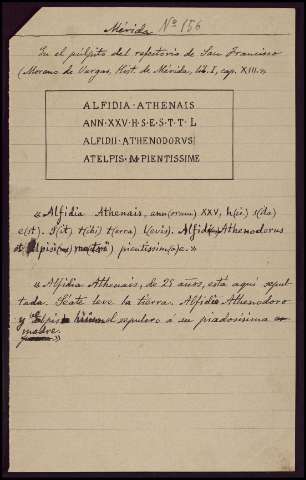 Mérida Nº 156
En el púlpito del refectorio de San Francisco
(Moreno de Vargas, Hist. de Mérida, lib. I, cap. XIII.»
ALFIDIA · ATHENAIS
ANN · XXV · H · S · E · S · T · T · L
ALFIDII · ATHENODORVS
ATELPIS · M · PIENTISSIME
«Alfidia Athenais, ann(orum) XXV, h(ic) s(ita)
e(st). S(it) t(ibi) t(erra) l(evis). Alfidii Athenodorus
et Elpis matri pientissim(a)e.»
«Alfidia Athenais, de 25 años, está aquí sepul-
tada. Séate leve la tierra. Alfidio Athenodoro
y Elpis el sepulcro á su piadosísima
madre.»